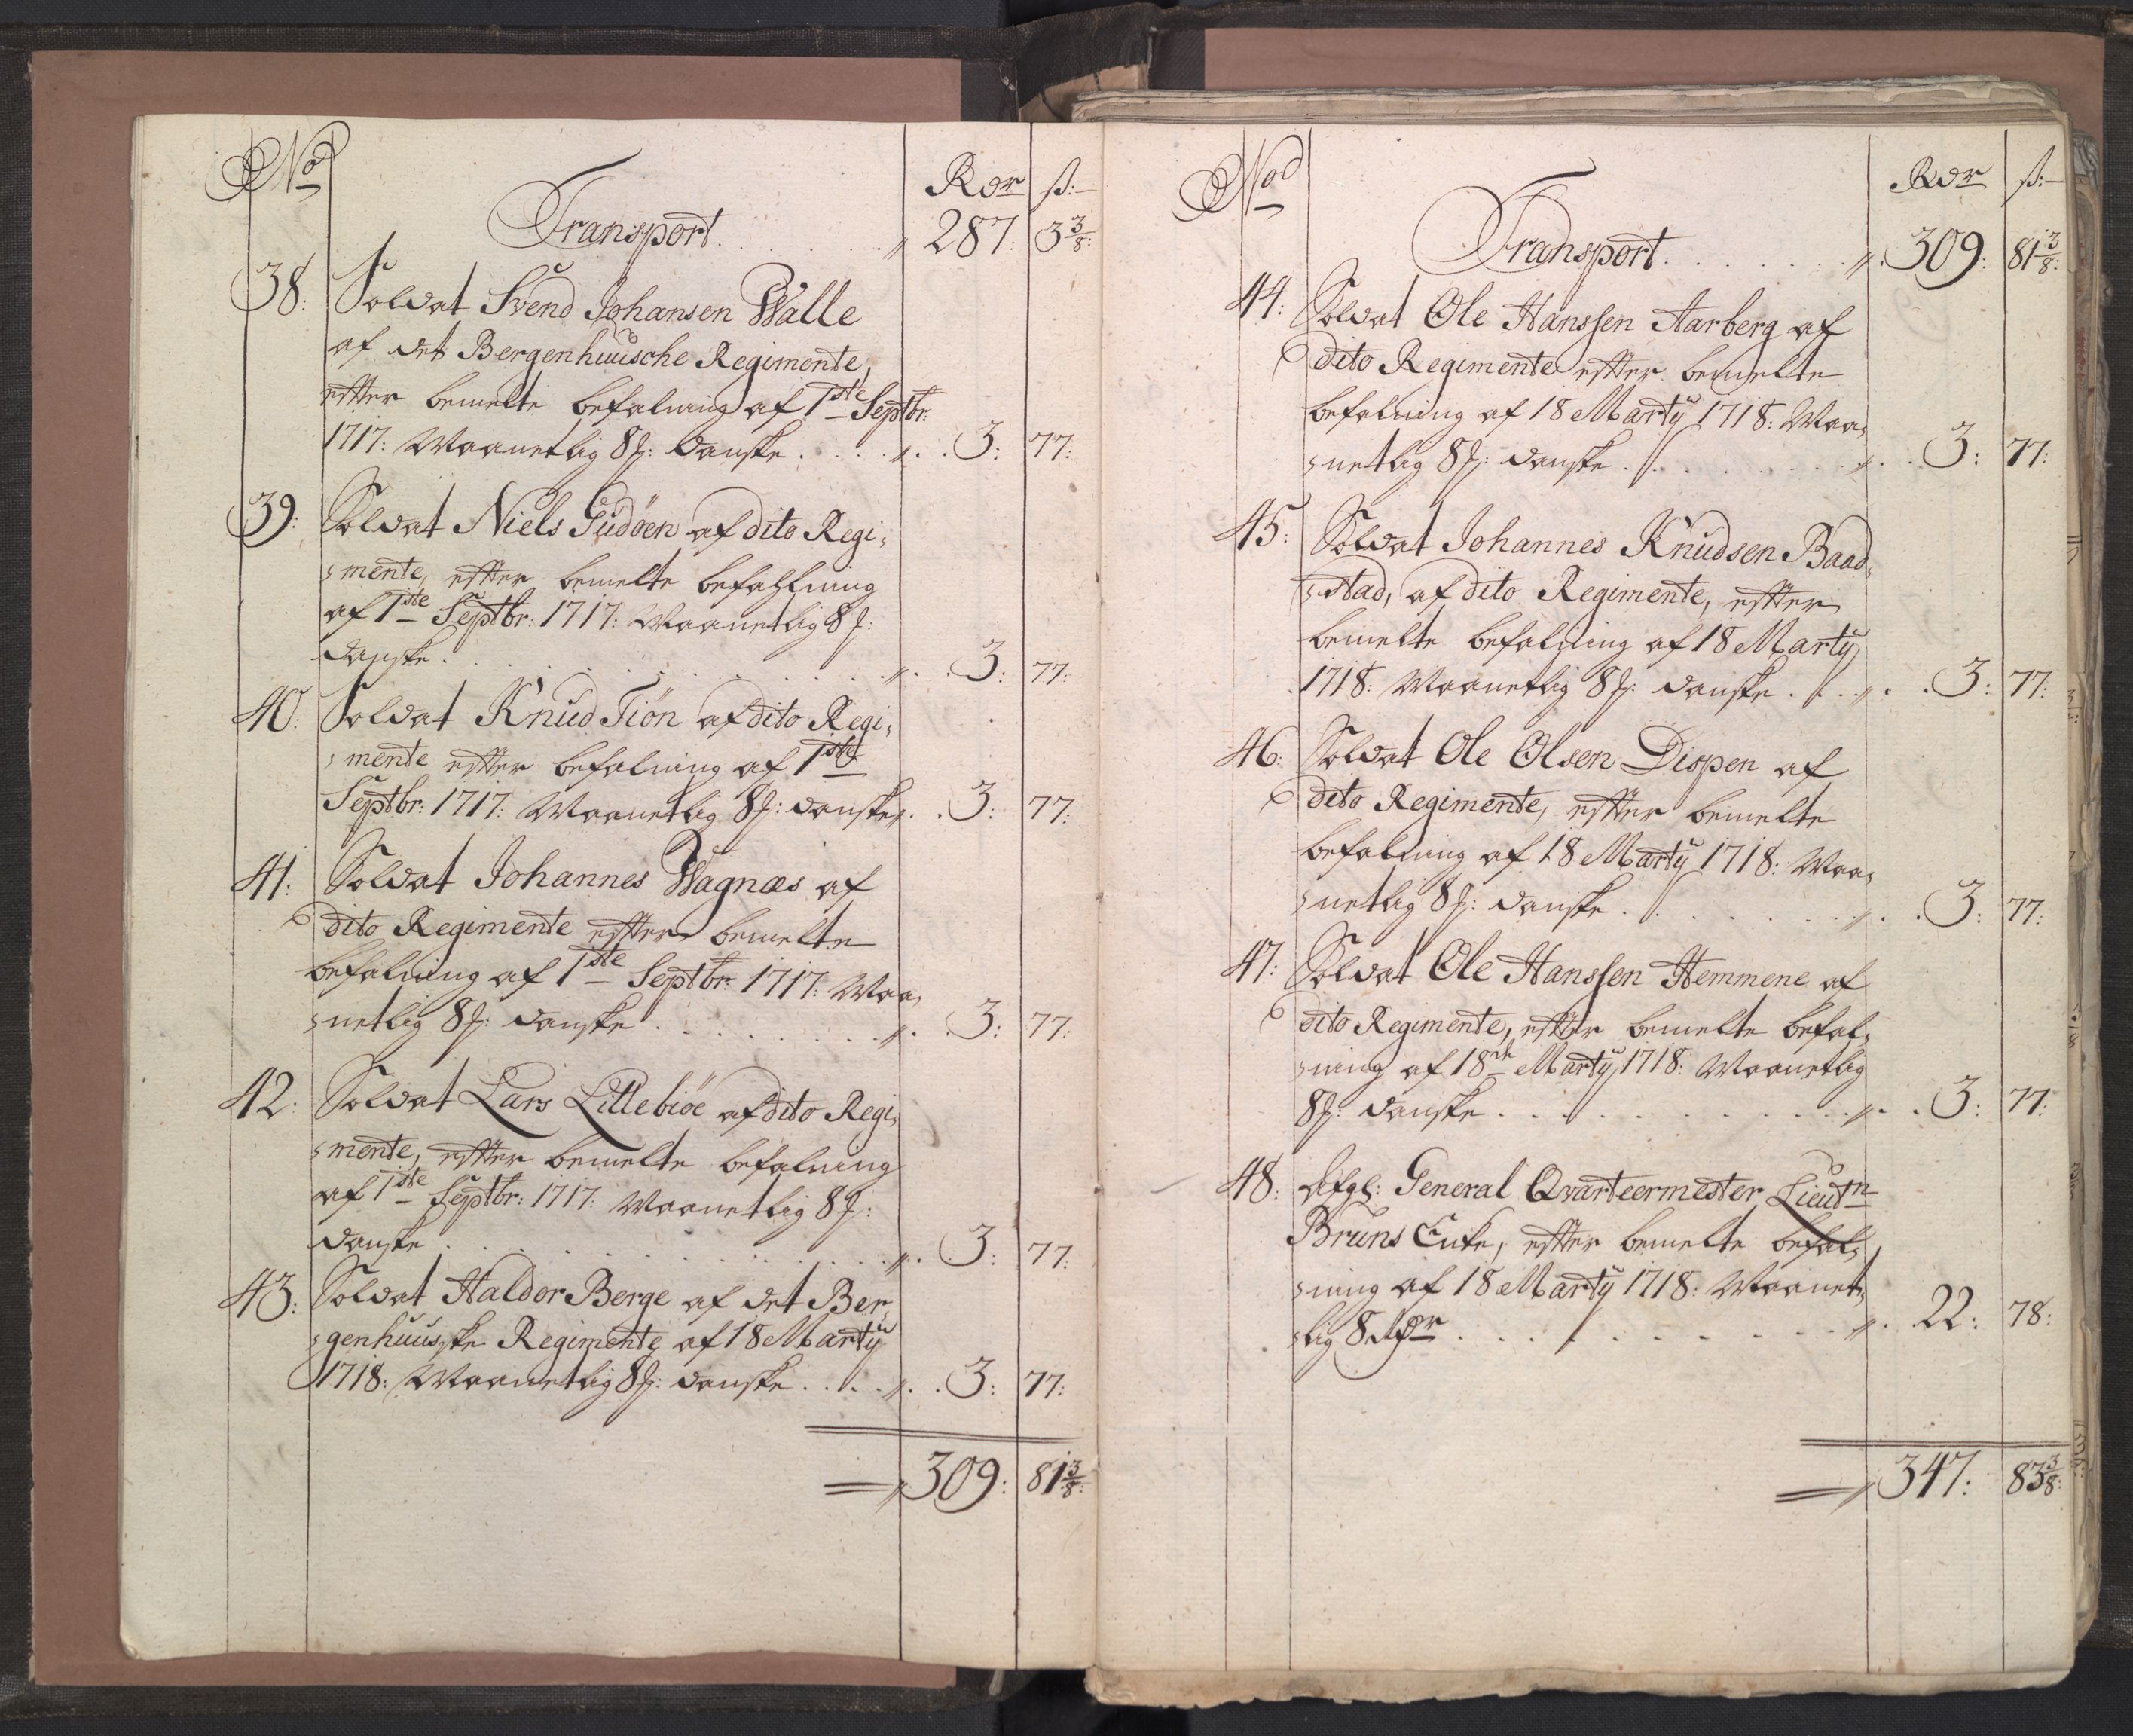 No
Rdr ß:
Transport . . . . . . . 287: 3 3/8:
38: Soldat Svend Johansen Walle
af det Bergenhuusche Regimente,
efter bemelte befalning af 1ste Septbr:
1717: Maanetlig 8 ß: danske . . . . 3: 77:
39: Soldat Niels Gudöen af dito Regi-
mente, efter bemelte befahlning
af 1ste Septbr: 1717: Maanetlig 8 ß:
danske . . . . . . . . 3: 77:
40: Soldat Knud Tiön af dito Regi-
mente efter befalning af 1ste
Septbr: 1717: Maanetlig 8 ß: danske . . 3: 77:
41: Soldat Johannes Wagnæs af
dito Regimente efter bemelte
befalning af 1ste Septbr: 1717: Maa-
netlig 8 ß: danske . . . . . . . 3: 77:
42: Soldat Lars Lillebiöe af dito Regi-
mente, efter bemelte befalning
af 1ste Septbr: 1717: Maanetlig 8 ß:
danske . . . . . . . . 3: 77:
43: Soldat Haldor Berge af det Ber-
genhuusske Regimente af 18 Martÿ
1718: Maanetlig 8 ß: danske . . . . 3: 77:
309: 81 3/8:
No
Rdr ß:
Transport . . . . . . . 309: 81 3/8:
44: Soldat Ole Hanssen Aarberg af
dito Regimente efter bemelte
befalning af 18 Martÿ 1718: Maa-
netlig 8 ß: danske . . . . . . . 3: 77:
45: Soldat Johannes Knudsen Baad-
stad, af dito Regimente, efter
bemelte befalning af 18 Martÿ
1718: Maanetlig 8 ß: danske . . . . 3: 77:
46: Soldat Ole Olsen Dispen af
dito Regimente, efter bemelte
befalning af 18 Martÿ 1718: Maa-
netlig 8 ß: danske . . . . . . . 3: 77:
47: Soldat Ole Hanssen Hemmene af
dito Regimente, efter bemelte befal-
ning af 18de Martÿ 1718: Maanetlig
8 ß: danske . . . . . . . . 3: 77:
48: General Qvarteermester Lieutn
Bruns Enke, efter bemelte befal-
ning af 18 Martÿ 1718: Maanet-
lig 8 . . . . . . . . 22: 78:
347: 83 3/8: